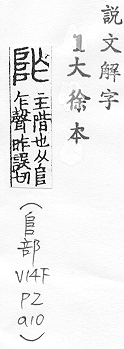 説文解字
1大徐本
阼
主階也从𨸏
乍聲昨誤切
(𨸏部
V14F
P2
a10)